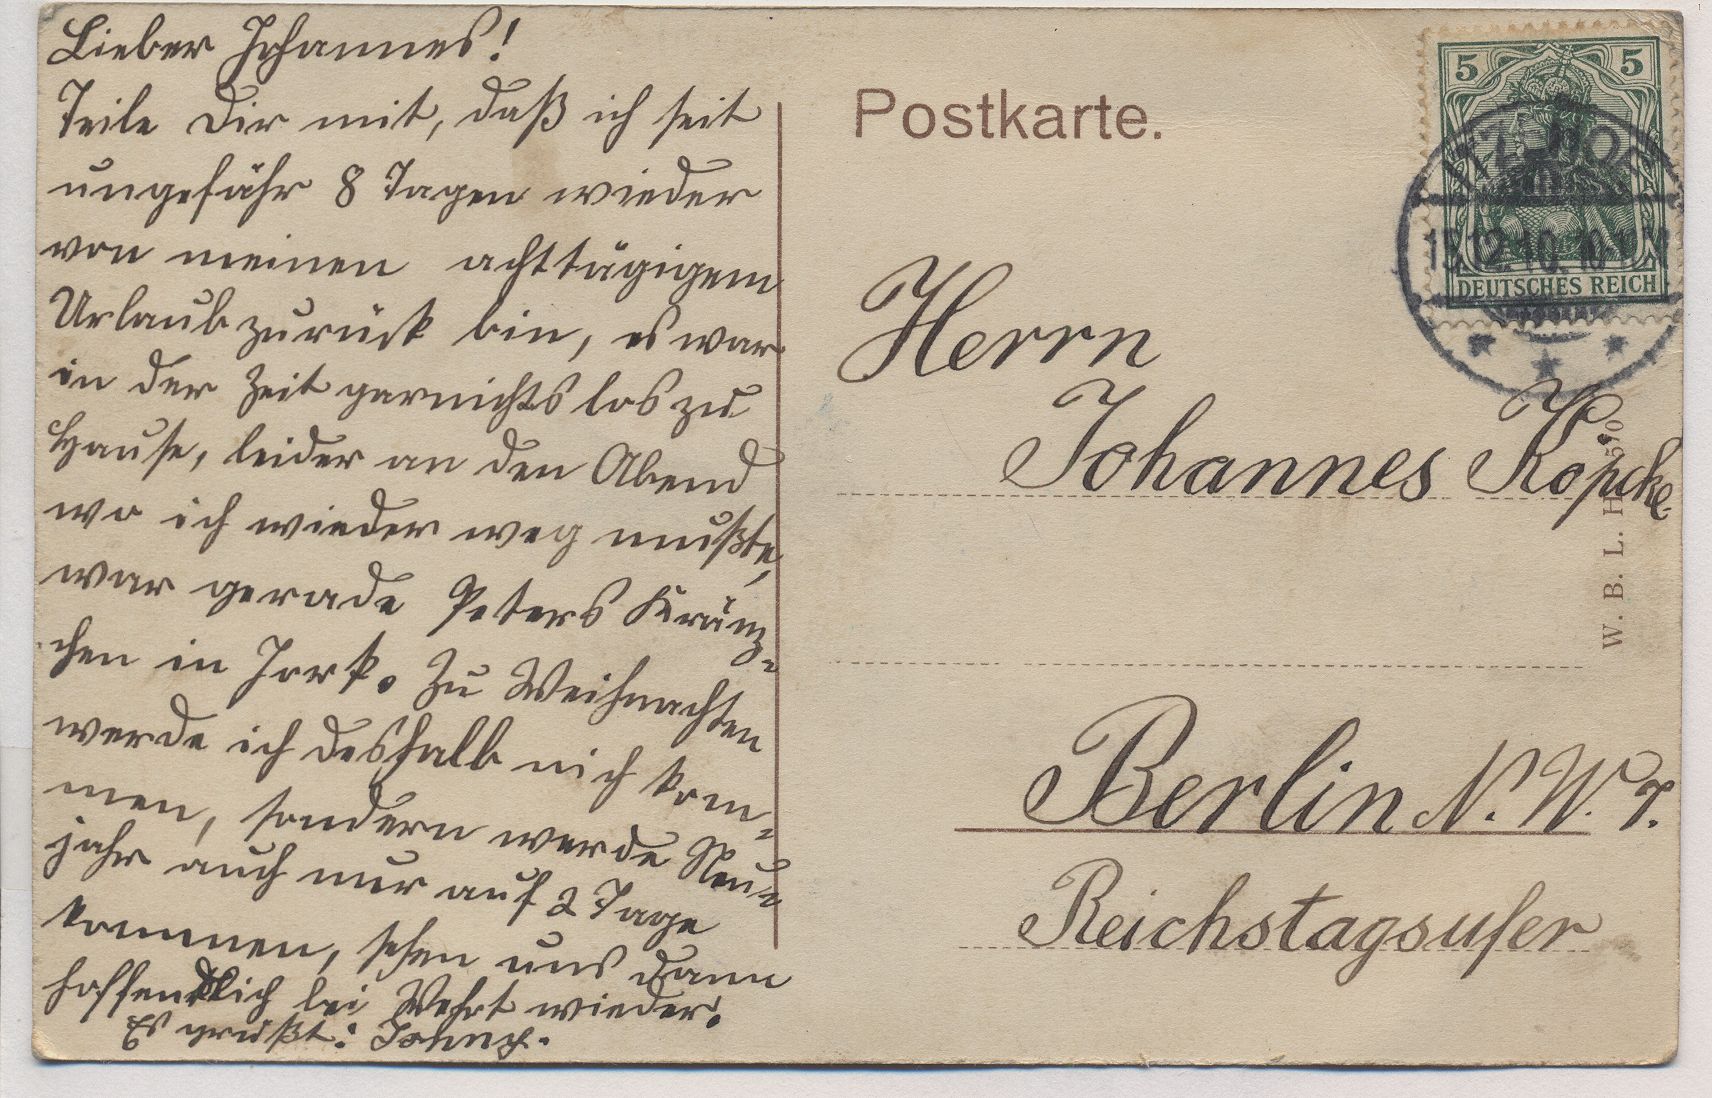 Lieber Johannes!
Teile Dir mit, daß ich seit
ungefähr 8 Tagen wieder
von meinen achttägigem
Urlaub zurück bin, es war
in der Zeit garnichts los zu
Hause, leider an den Abend
wo ich wieder weg mußte,
war gerade Peters Kränz-
chen in Jork. Zu Weihnachten
werde ich deshalb nich kom-
men, sondern werde Neu-
jahr auch nur auf 2 Tage
kommen, sehen uns dann
hoffendlich bei Wehrt wieder.
Es grüßt:
Postkarte.
5 5
DEUTSCHES REICH
Herrn
Johannes Köpcke
Berlin N. W. 7.
Reichstagsufer
W. B. L.